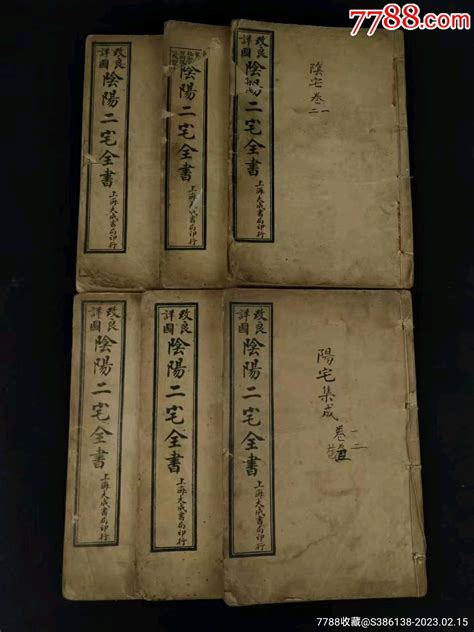 7788.com
改良
詳圖
陰陽二宅全書
上海大成書局印行
改良
詳圖
陰陽二宅全書
上海大成書局印行
改良
詳圖
陰陽二宅全書
上海大成書局印行
陰宅卷一
二
改良
詳圖
陰陽二宅全書
上海大成書局印行
改良
詳圖
陰陽二宅全書
上海大成書局印行
改良
詳圖
陰陽二宅全書
上海大成書局印行
陽宅集成
卷一
二
7788收藏@S386138-2023.02.15